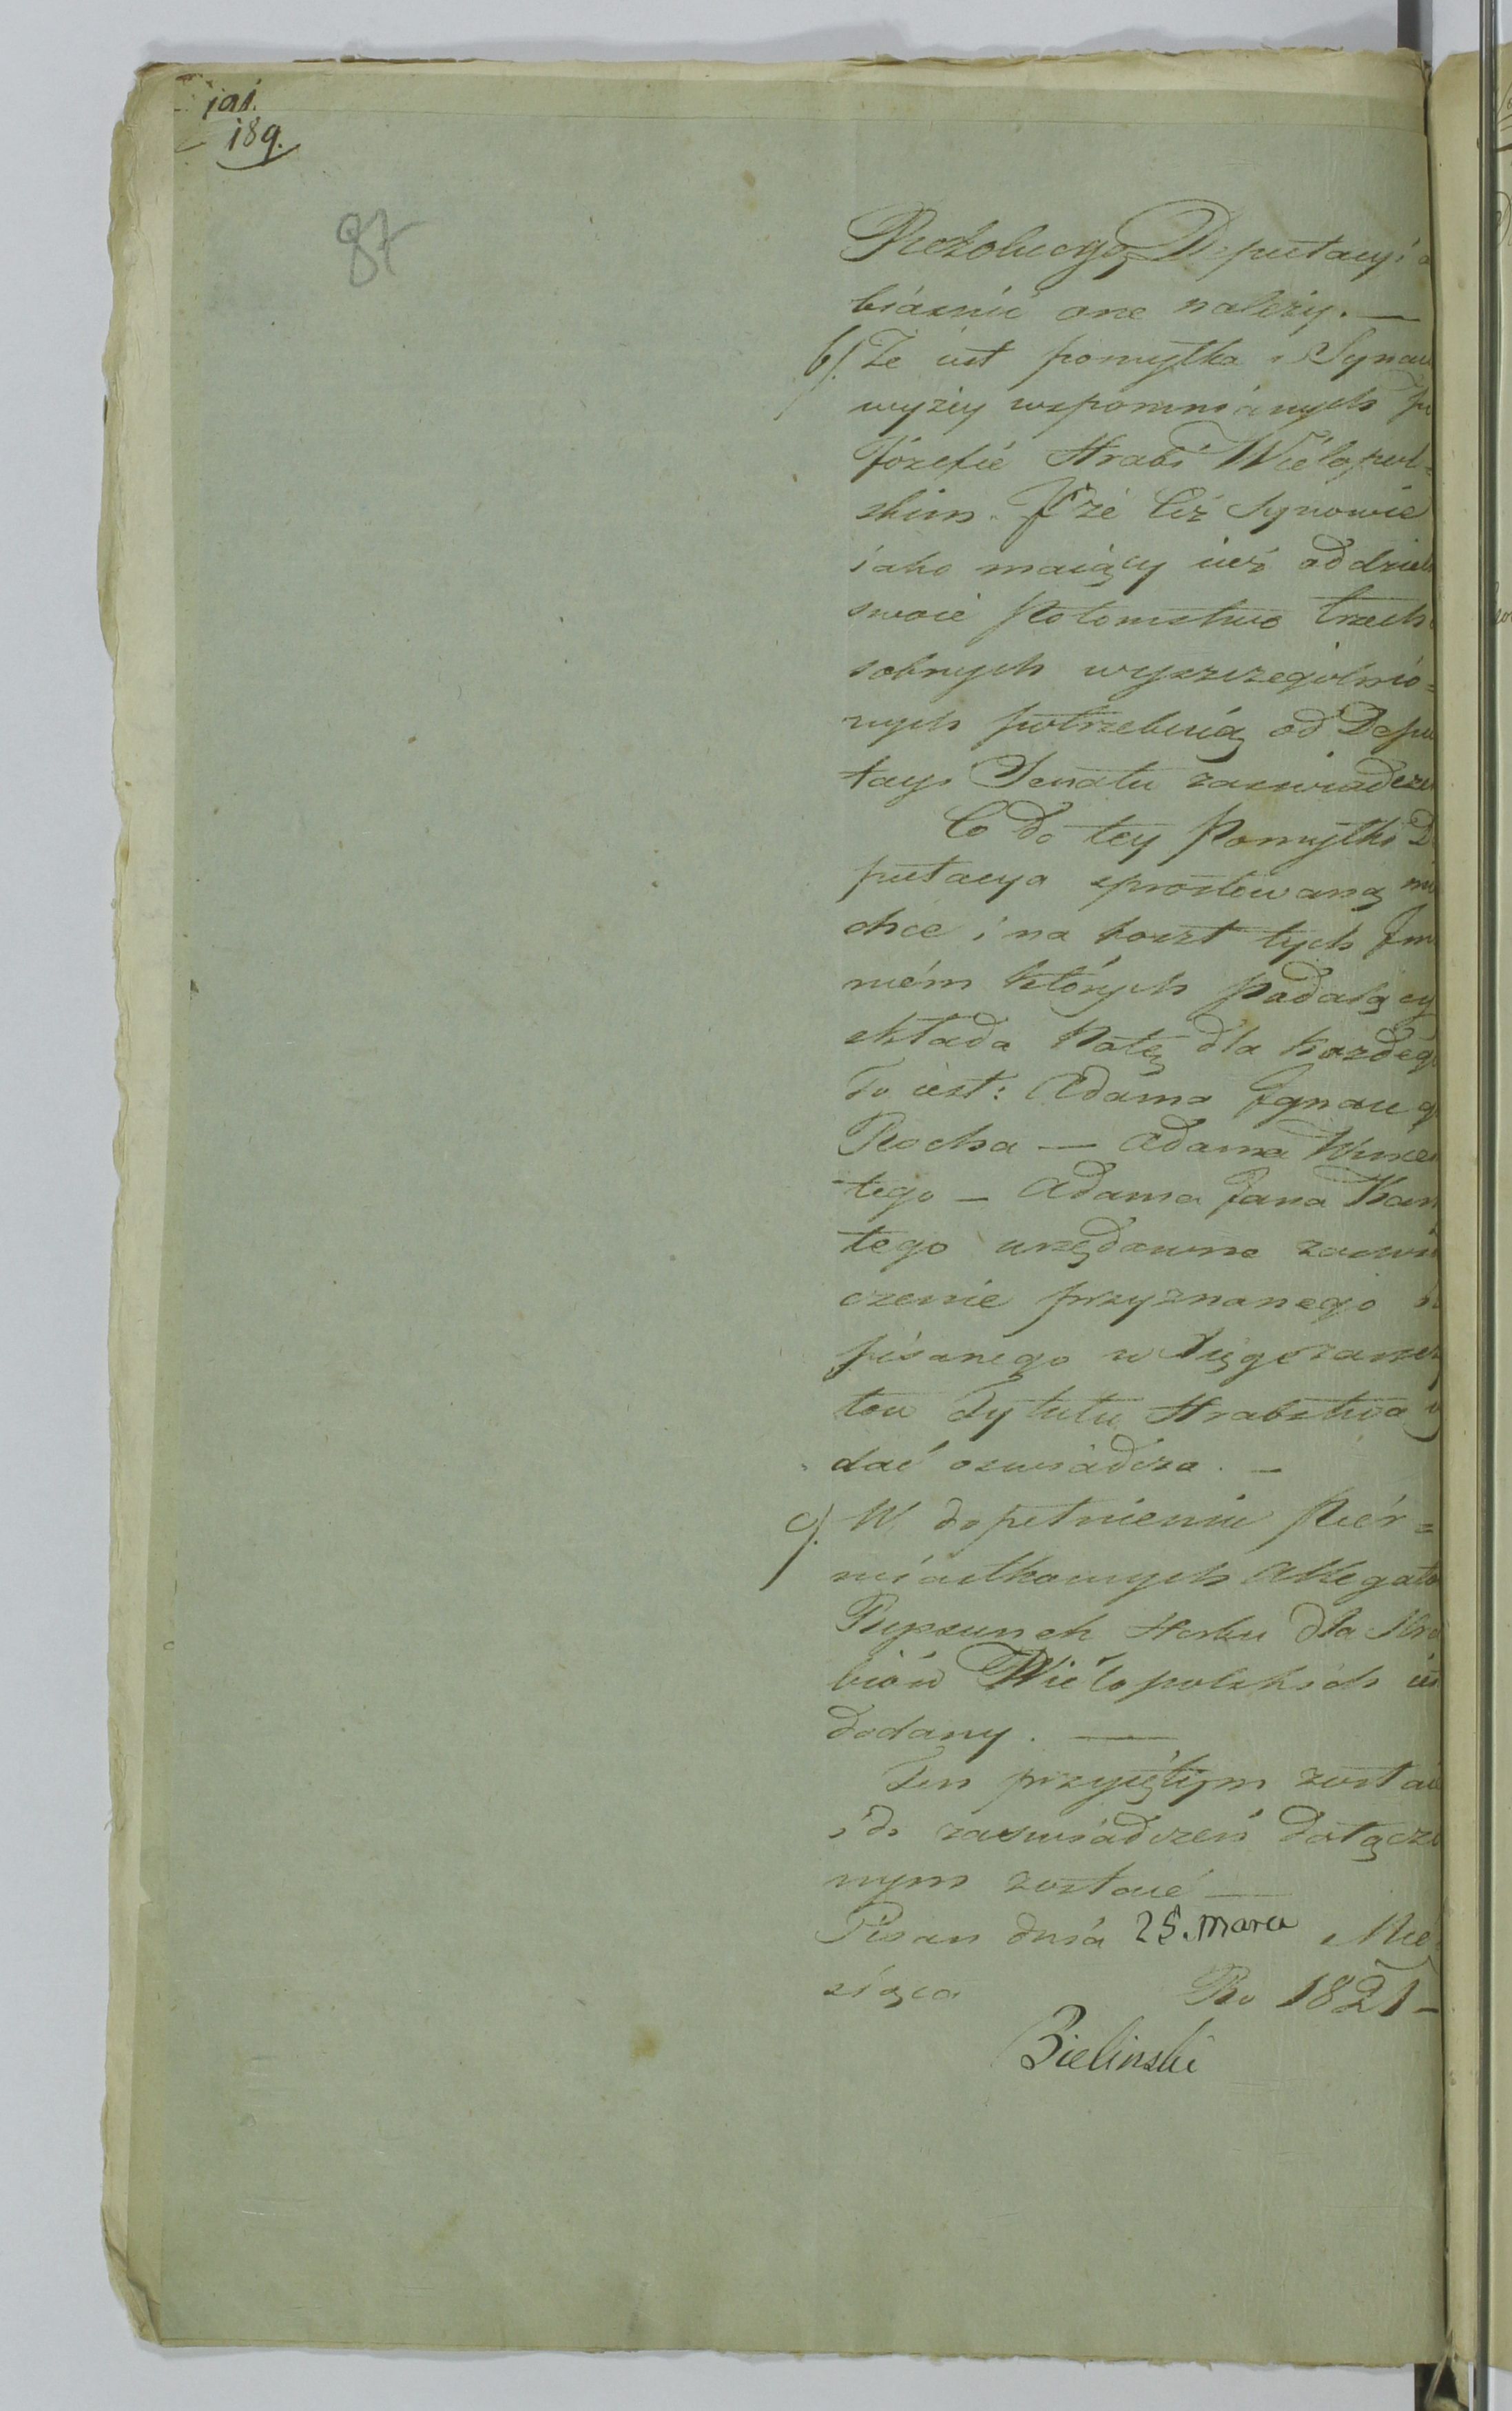 191.
189.
87
Rezolucyą Deputacyi
biaśnić one należy. —
b/. Że iest pomyłka
wyżey wspomnianych po
Józefie Hrabi Wielopol=
skim. I że Ciż Synowie
iako maiący iuż oddziel
swoie Potomstwo trzech
sobnych wyszczególnio=
nych potrzebuią od Depu
tacyi Senatu zaświadcze
Co do tey Pomyłki D
putacya sprostowaną mi
chce i na koszt tych Im
niem których Podaiący
składa Notę dla każdeg
To iest: Adama Ignaceg
Rocha — Adama Wincen
tego — Adama Jana Kan
tego urzędowne zaświ
czenie przyznanego
pisanego w
tow Tytułu Hrabstwa
dać oświadcza. —
c/. W dopełnieniu Pier=
wiastkowych Allegato
Rysunek Herbu dla Hra
biów Wielopolskich ies
dodany. —
Ten przyiętym został
i do zaświadczeń dołączo
nym zostać —
Pisan dnia 25. marca Mie
siąca Ro 1821 —
Bielinski